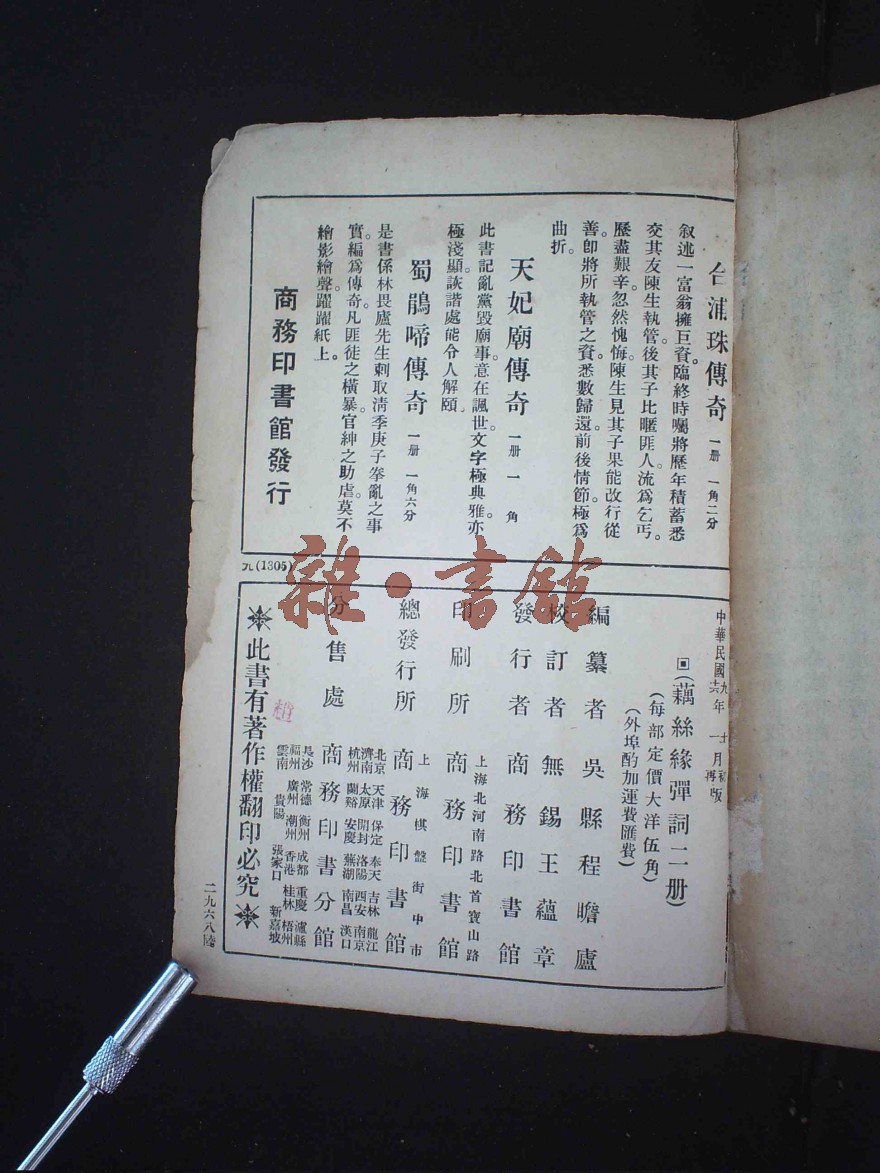 合浦珠傳奇 一册 一角二分
叙述一富翁擁巨資。臨終時囑將歷年積蓄悉
交其友陳生執管。後其子比暱匪人。流爲乞丐。
歷盡艱辛。忽然愧悔。陳生見其子果能改行從
善。卽將所執管之資。悉數歸還。前後情節。極爲
曲折。
天妃廟傳奇 一册 一角
此書記亂黨毀廟事。意在諷世。文字極典雅。亦
極淺顯。詼諧處能令人解頤
蜀鵑啼傳奇 一册 一角六分
是書係林畏廬先生剌取淸季庚子拳亂之事
實。編爲傳奇。凡匪徒之橫暴。官紳之助虐。莫不
繪影繪聲。躍躍紙上。
商務印書館發行
九(1305)
雜·書館
中華民國九年十一月初版
(藕絲緣彈詞二册)
(每部定價大洋伍角)
(外埠酌加運費匯費)
編纂者 吳縣程瞻廬
校訂者 無錫王蘊章
發行者 商務印書館
上海北河南路北首寶山路
印刷所 商務印書館
上海棋盤街中市
總發行所 商務印書館
北京 天津 保定 奉天 吉林 龍江
濟南 太原 開封 洛陽 西安 南京
杭州 蘭谿 安慶 蕪湖 南昌 漢口
分售處 商務印書分館
長沙 常德 衡州 成都 重慶 瀘縣
福州 廣州 潮州 香港 桂林 梧州
雲南 貴陽 張家口 新嘉坡
此書有著作權翻印必究
二九六八陸